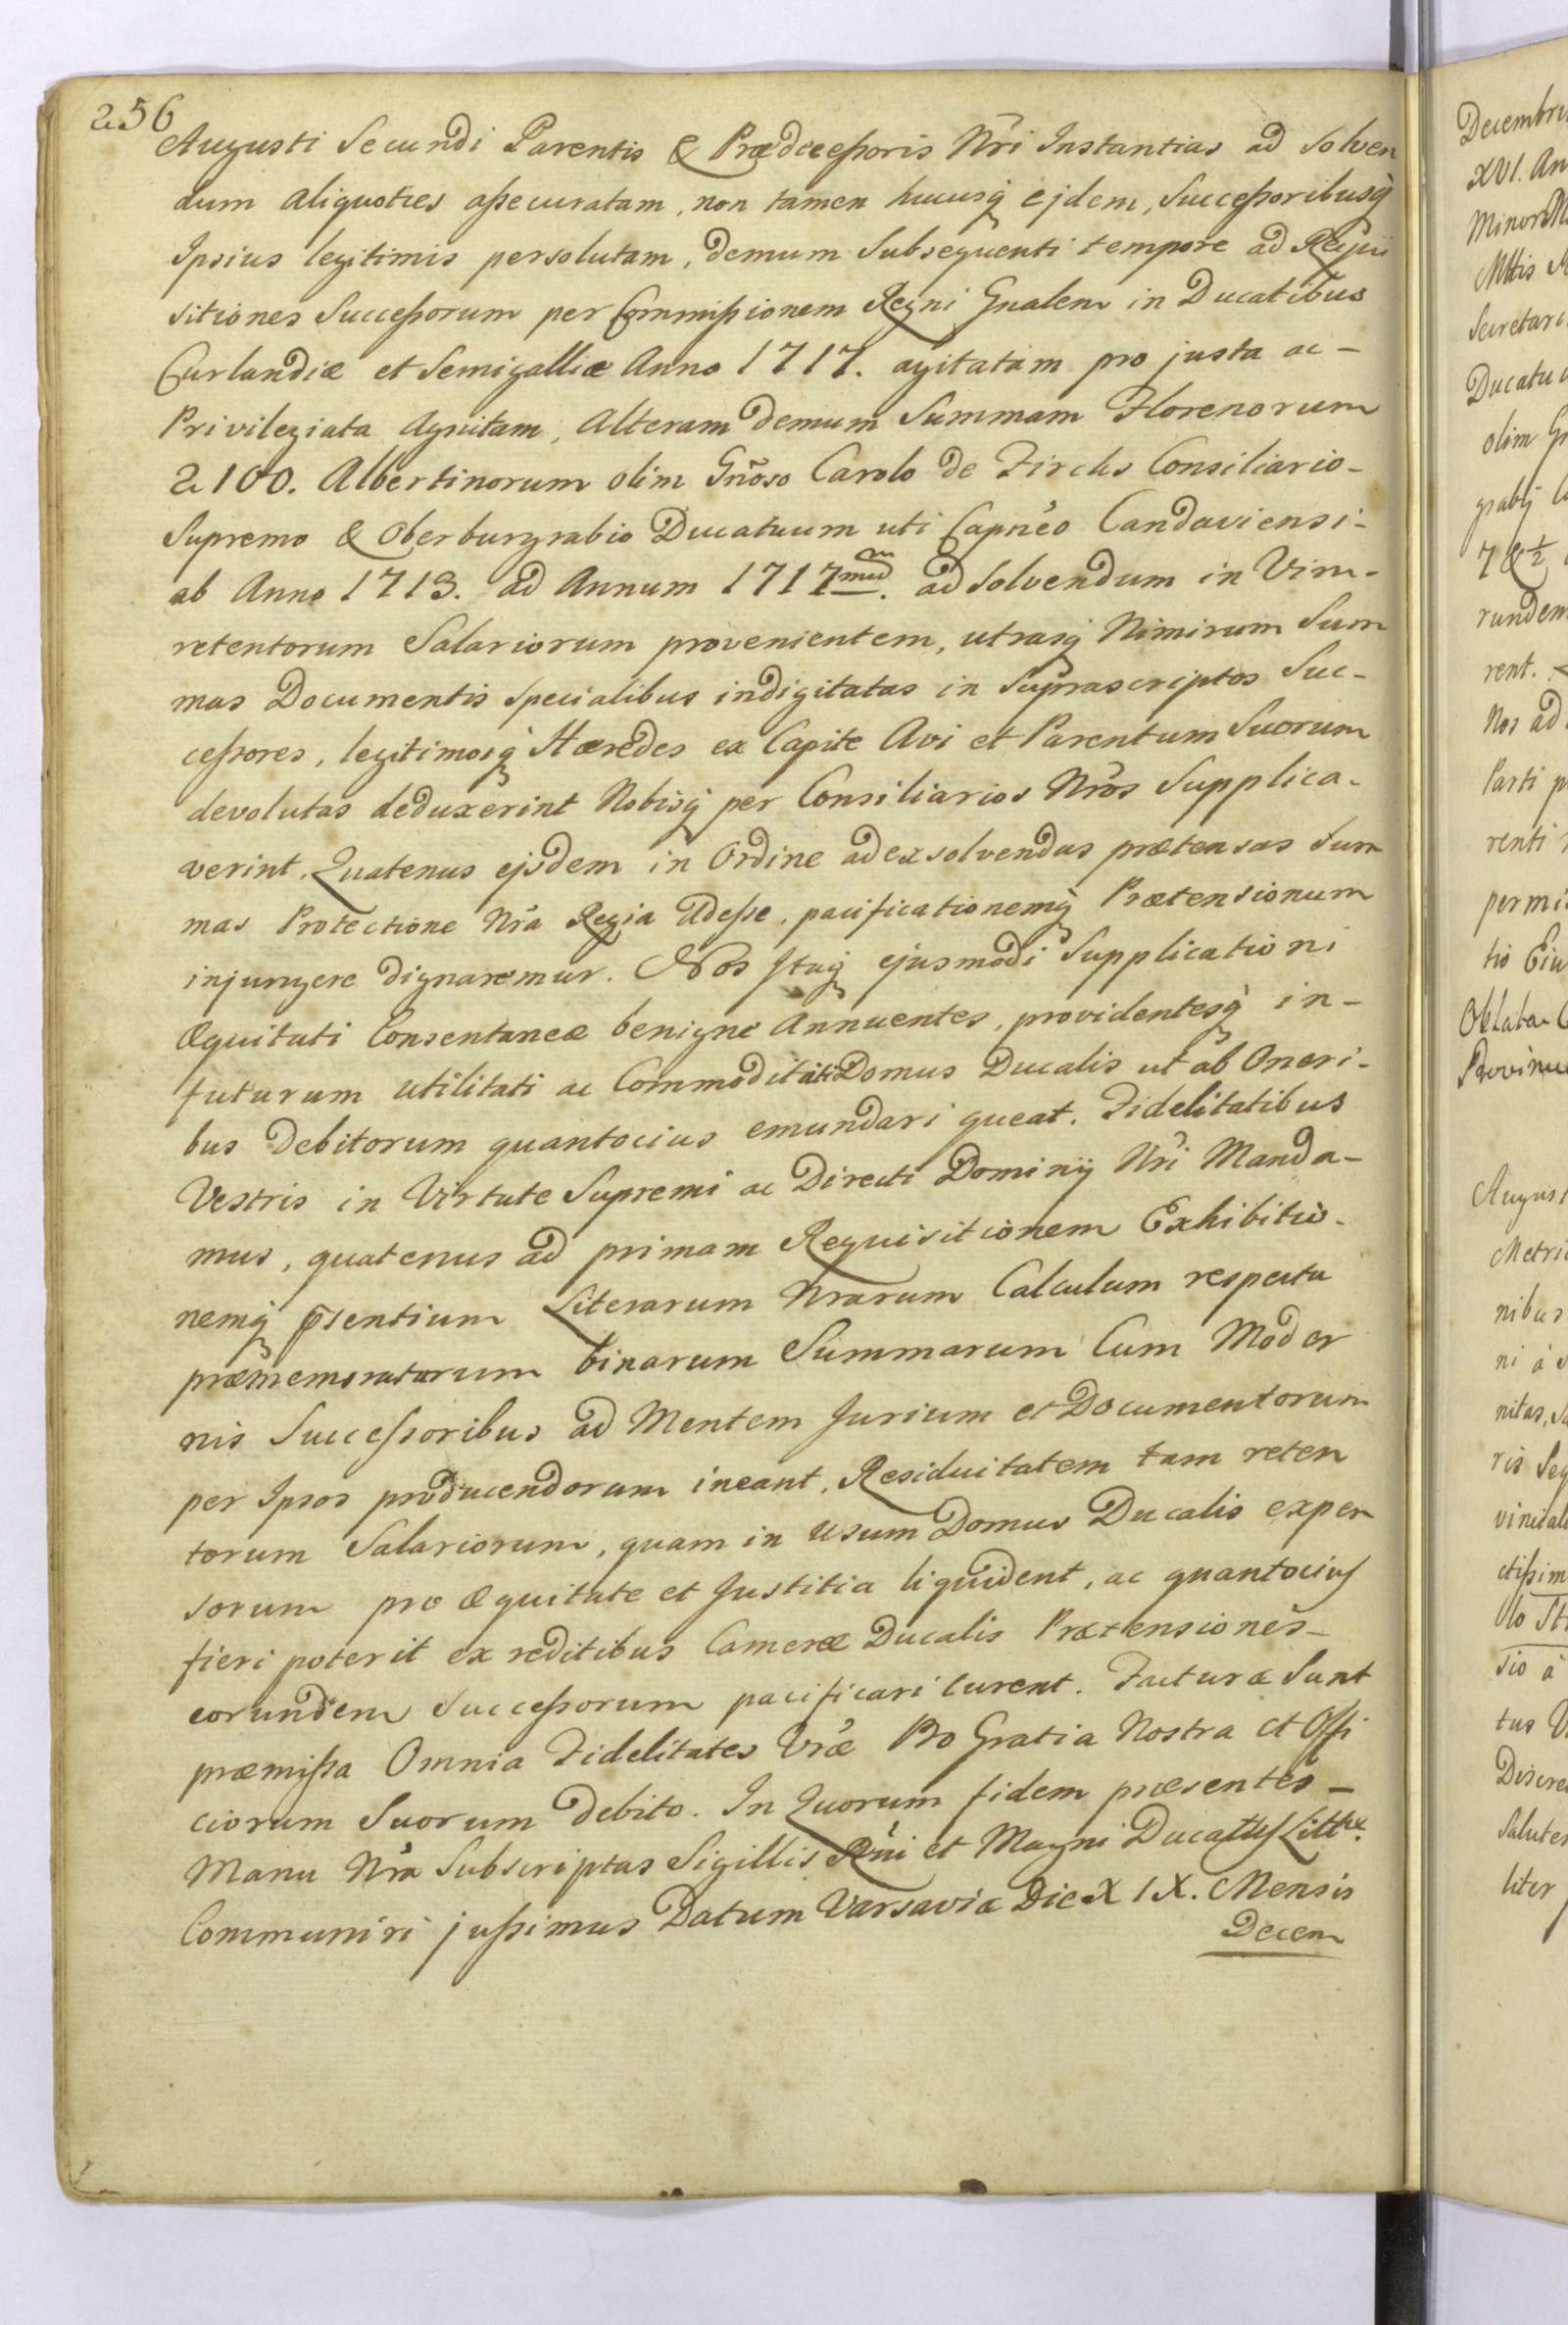 256
Augusti Secundi Parentis & Prædecessoris Nri Instantias ad Solven
dum aliquoties assecuratam, non tamen hucusq ejdem, Successoribusq
Ipsius legitimis persolutam, demum Subsequenti tempore ad Requi
sitiones Successorum per Commissionem Regni Gnalem in Ducatibus
Curlandiæ et Semigalliæ Anno 1717. agitatam pro justa ac -
Privilegiata Agnitam, Alteram demum Summam Florenorum
2100. Albertinorum olim Gnoso Carolo de Fircks Consiliario -
Supremo & Oberburgrabio Ducatuum uti Capneo Candaviensi -
ab Anno 1713. ad Annum 1717mum. ad Solvendum in Vim -
retentorum Salariorum provenientem, utrasq Nimirum Sum
mas Documentis Specialibus indigitatas in Suprascriptos Suc -
cessores, legitimosq Hæredes ex Capite Avi et Parentum Suorum
devolutas deduxerint Nobisq per Consiliarios Nros Supplica -
verint, Quatenus ejsdem in Ordine ad exsolvendas prætensas Sum
mas Protectione Nra Regia Adesse, pacificationemq Prætensionum
injungere dignaremur. Nos Itaq ejusmodi Supplicationi
Æquitati Consentaneæ benigne Annuentes, providentesq in -
futurum utilitati ac Commoditati Domus Ducalis ut ab Oneri -
bus Debitorum quantocius emundari queat. Fidelitatibus
Vestris in Virtute Supremi ac Directi Dominij Nri Manda -
mus, quatenus ad primam Requisitionem Exhibitio -
nemq psentium Literarum Nrarum Calculum respectu
præmemoratarum binarum Summarum Cum Moder
nis Successoribus ad Mentem Jurium et Documentorum
per Ipsos producendorum ineant, Residuitatem tam reten
torum Salariorum, quam in usum Domus Ducalis expen
sorum pro Æquitate et Justitia liquident, ac quantocius
fieri poterit ex reditibus Cameræ Ducalis Prætensiones -
eorundem Successorum pacificari curent. Facturæ Sunt
præmissa Omnia Fidelitates Vræ Pro Gratia Nostra et Offi
ciorum Suorum debito. In Quorum fidem præsentes -
Manu Nra Subscriptas Sigillis Rni et Magni Ducatus Littvæ.
Communiri jussimus Datum Varsaviæ Die XIX. Mensis
Decem